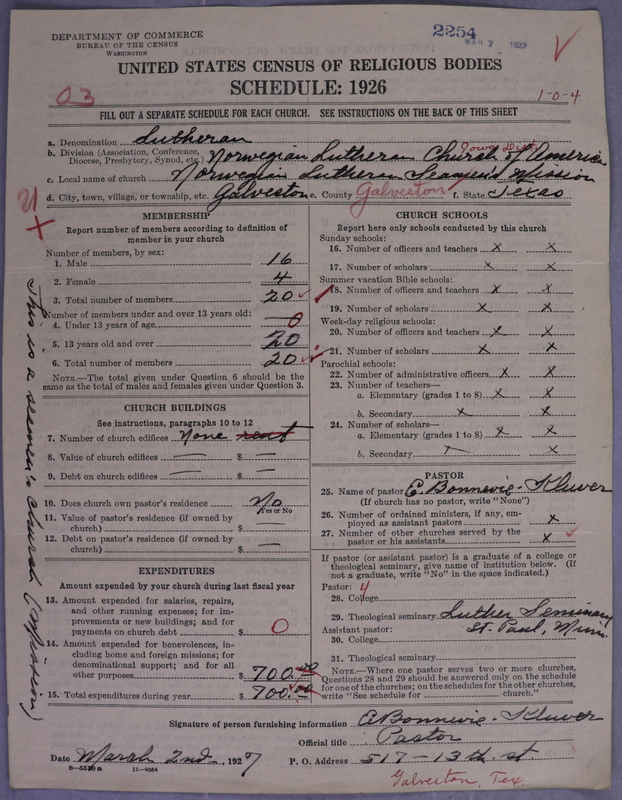 DEPARTMENT OF COMMERCE
BUREAU OF THE CENSUS
WASHINGTON
2254
MAR 7 1927
UNITED STATES CENSUS OF RELIGIOUS BODIES
SCHEDULE: 1926
03
1-0-4
FILL OUT A SEPARATE SCHEDULE FOR EACH CHURCH. SEE INSTRUCTIONS ON THE BACK OF THIS SHEET
a. Denomination Lutheran
b. Division (Association, Conference, Diocese, Presbytery, Synod, etc.) Norwegian Lutheran Church of America Iowa Dist
c. Local name of church Norwegian Lutheran Seamens Mission
d. City, town, village, or township, etc. Galveston e. County Galveston f. State Texas
MEMBERSHIP
Report number of members according to definition of
member in your church
Number of members, by sex:
1. Male 16
2. Female 4
3. Total number of members 20
Number of members under and over 13 years old:
4. Under 13 years of age 0
5. 13 years old and over 20
6. Total number of members 20
NOTE.—The total given under Question 6 should be
same as the total of males and females given under Question 3.
CHURCH BUILDINGS
See instructions, paragraphs 10 to 12
7. Number of church edifices None rent
8. Value of church edifices — $ —
9. Debt on church edifices — $ —
10. Does church own pastor's residence No
Yes or No
11. Value of pastor's residence (if owned by
church) $ —
12. Debt on pastor's residence (if owned by
church) $ —
EXPENDITURES
Amount expended by your church during last fiscal year
13. Amount expended for salaries, repairs,
and other running expenses; for im-
provements or new buildings; and for
payments on church debt $ 0
14. Amount expended for benevolences, in-
cluding home and foreign missions; for
denominational support; and for all
other purposes $ 700.00
15. Total expenditures during year $ 700.00
This is a seamen's church (mission)
CHURCH SCHOOLS
Report here only schools conducted by this church
Sunday schools:
16. Number of officers and teachers x x
17. Number of scholars x x
Summer vacation Bible schools:
18. Number of officers and teachers x x
19. Number of scholars x x
Week-day religious schools:
20. Number of officers and teachers x x
21. Number of scholars x x
Parochial schools:
22. Number of administrative officers x x
23. Number of teachers—
a. Elementary (grades 1 to 8) x x
b. Secondary x x
24. Number of scholars—
a. Elementary (grades 1 to 8) x x
b. Secondary x x
PASTOR
25. Name of pastor E. Bonnevie-Kluver
(If church has no pastor, write "None")
26. Number of ordained ministers, if any, em-
ployed as assistant pastors x
27. Number of other churches served by the
pastor or his assistants x
If pastor (or assistant pastor) is a graduate of a college or
theological seminary, give name of institution below. (If
not a graduate, write "No" in the space indicated.)
Pastor:
28. College
29. Theological seminary Luther Seminary
St. Paul, Minn.
Assistant pastor:
30. College
31. Theological seminary
NOTE.—Where one pastor serves two or more churches,
Questions 28 and 29 should be answered only on the schedule
for one of the churches; on the schedules for the other churches,
write "See schedule for church."
Signature of person furnishing information E Bonnevie-Kluver
Official title Pastor
Date March 2nd, 1927 P. O. Address 517-13th st.
8—5518a 11—9064
Galveston, Tex.